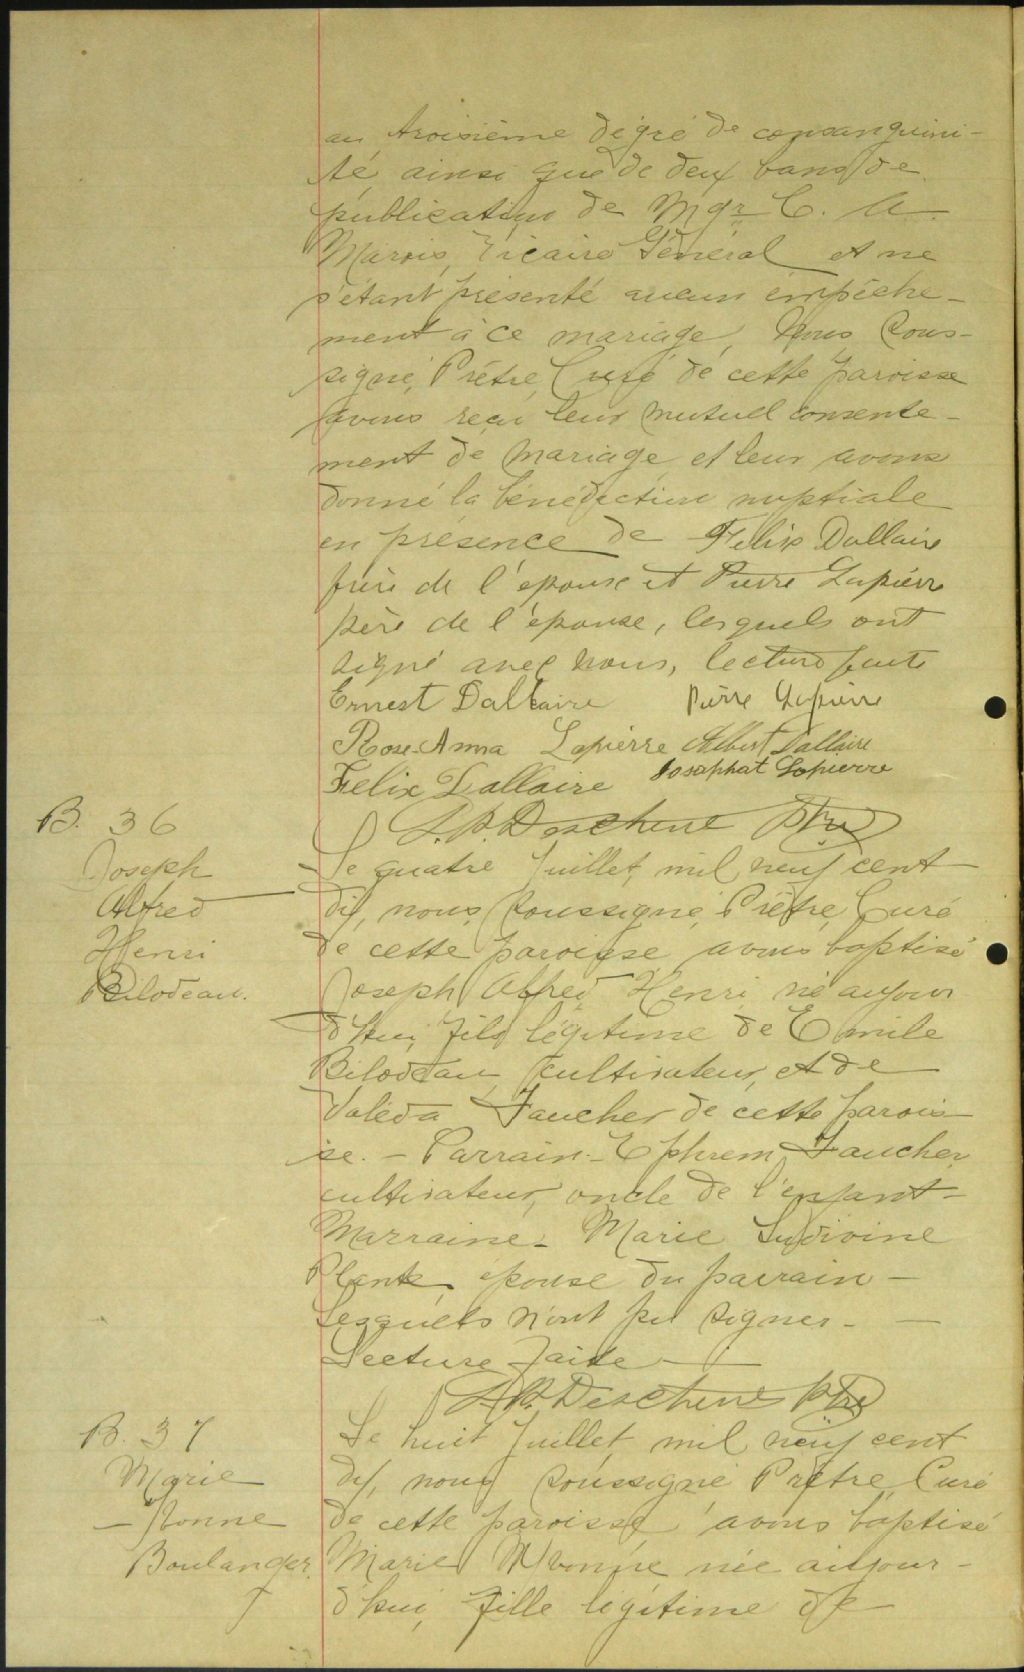 au troisième dégré de consanguini-
té ainsi que de deux bans de
publication de Mgr C. A.
Marois, Vicaire Général et ne
s'étant présenté aucun empêche-
ment à ce mariage, Nous, sous-
signé, Prêtre, Curé de cette paroisse
avons reçu leur mutuel consente-
ment de mariage et leur avons
donné la bénédiction nuptiale
en présence de Felix Dallaire
frère de l'époux et Pierre Lapierre
père de l'épouse, lesquels ont
signé avec nous, lecture faite
Ernest Dallaire Pierre Lapierre
Rose-Anna Lapierre Albert Dallaire
Felix Dallaire Josaphat Lapierre
Deschene Ptre
B. 36
Joseph
Alfred
Henri
Bilodeau.
Le quatre Juillet, mil neuf cent
dix, nous, soussigné, Prêtre, Curé
de cette paroisse avons baptisé
Joseph Alfred Henri né aujour
d'hui, fils légitime de Emile
Bilodeau, cultivateur, et de
Valéda Faucher de cette parois
se. - Parrain - Ephrem Faucher,
cultivateur, oncle de l'enfant -
Marraine - Marie Ludivine
Plante, épouse du parrain -
Lesquels n'ont pu signer -
Lecture faite -
Deschene Ptre
B. 37
Marie
- Yvonne
Boulanger.
Le huit Juillet, mil neuf cent
dix, nous soussigné Prêtre, Curé
de cette paroisse avons baptisé
Marie Yvonne née aujour-
d'hui, fille légitime de